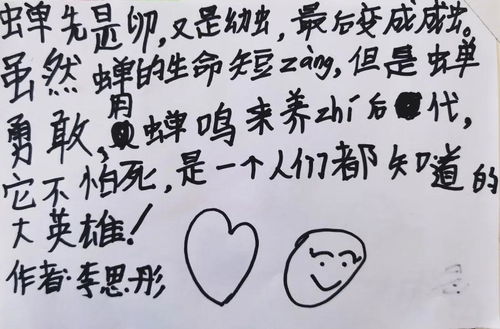 蝉先是卵,又是幼虫,最后变成成虫。
虽然蝉的生命短zàng,但是蝉
勇敢,用蝉鸣来养zhí后代,
它不怕死,是一个人们都知道的
大英雄!
作者:李思彤